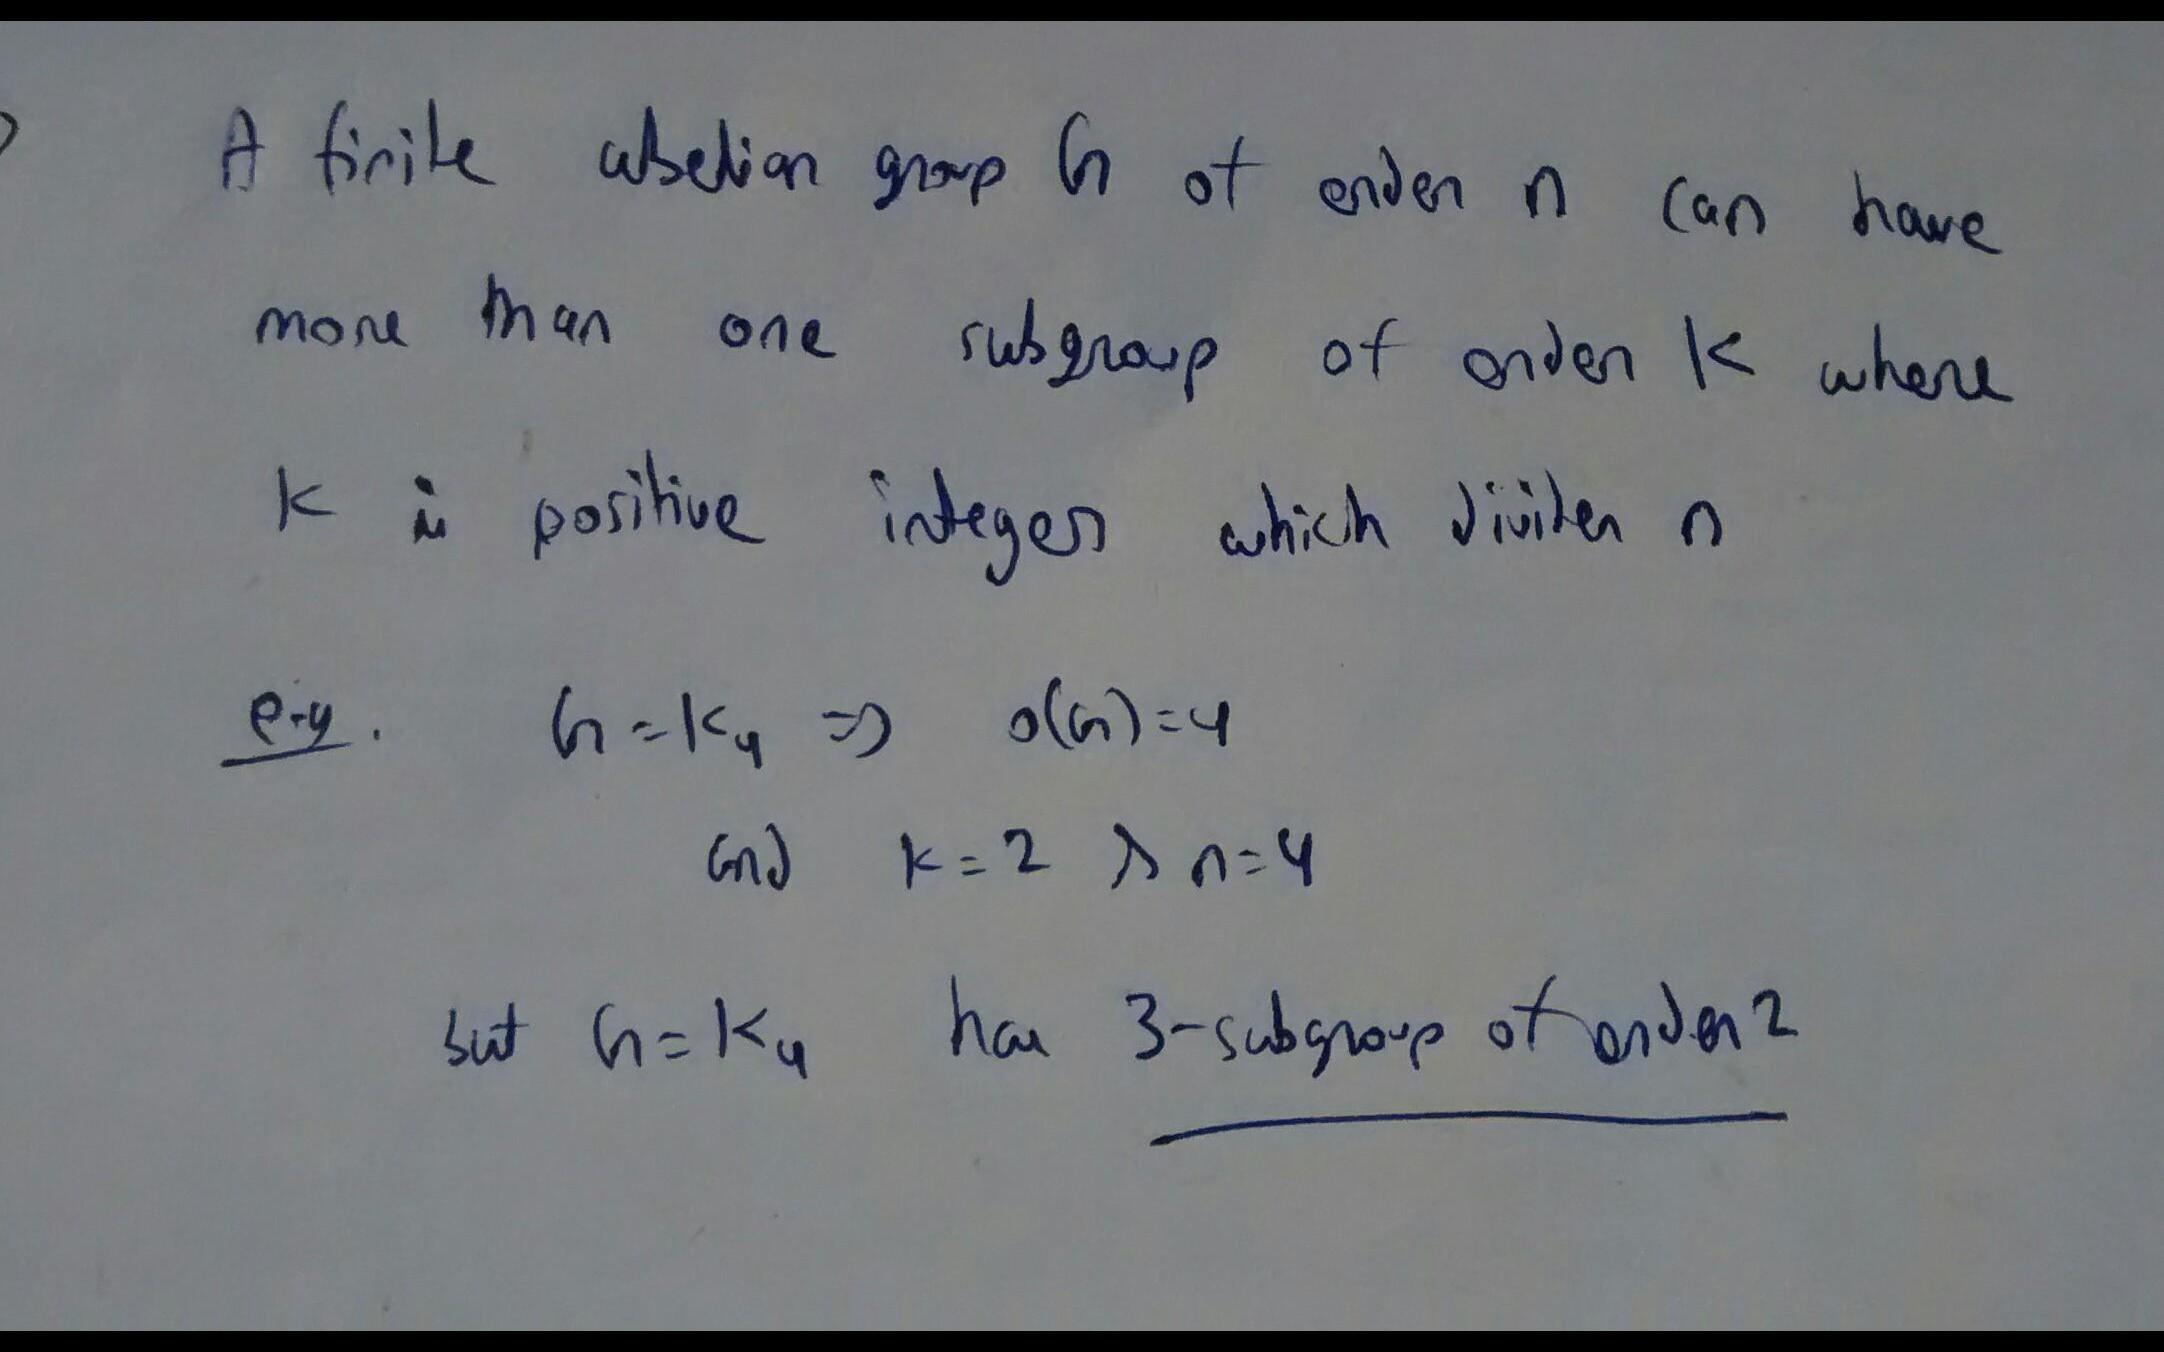 A finite abelian group G of order n can have
more than one subgroup of order K where
K is positive integer which divides n
e.g. G = K₄ ⇒ o(G) = 4
and K = 2 n = 4
but G = K₄ has 3-subgroup of order 2